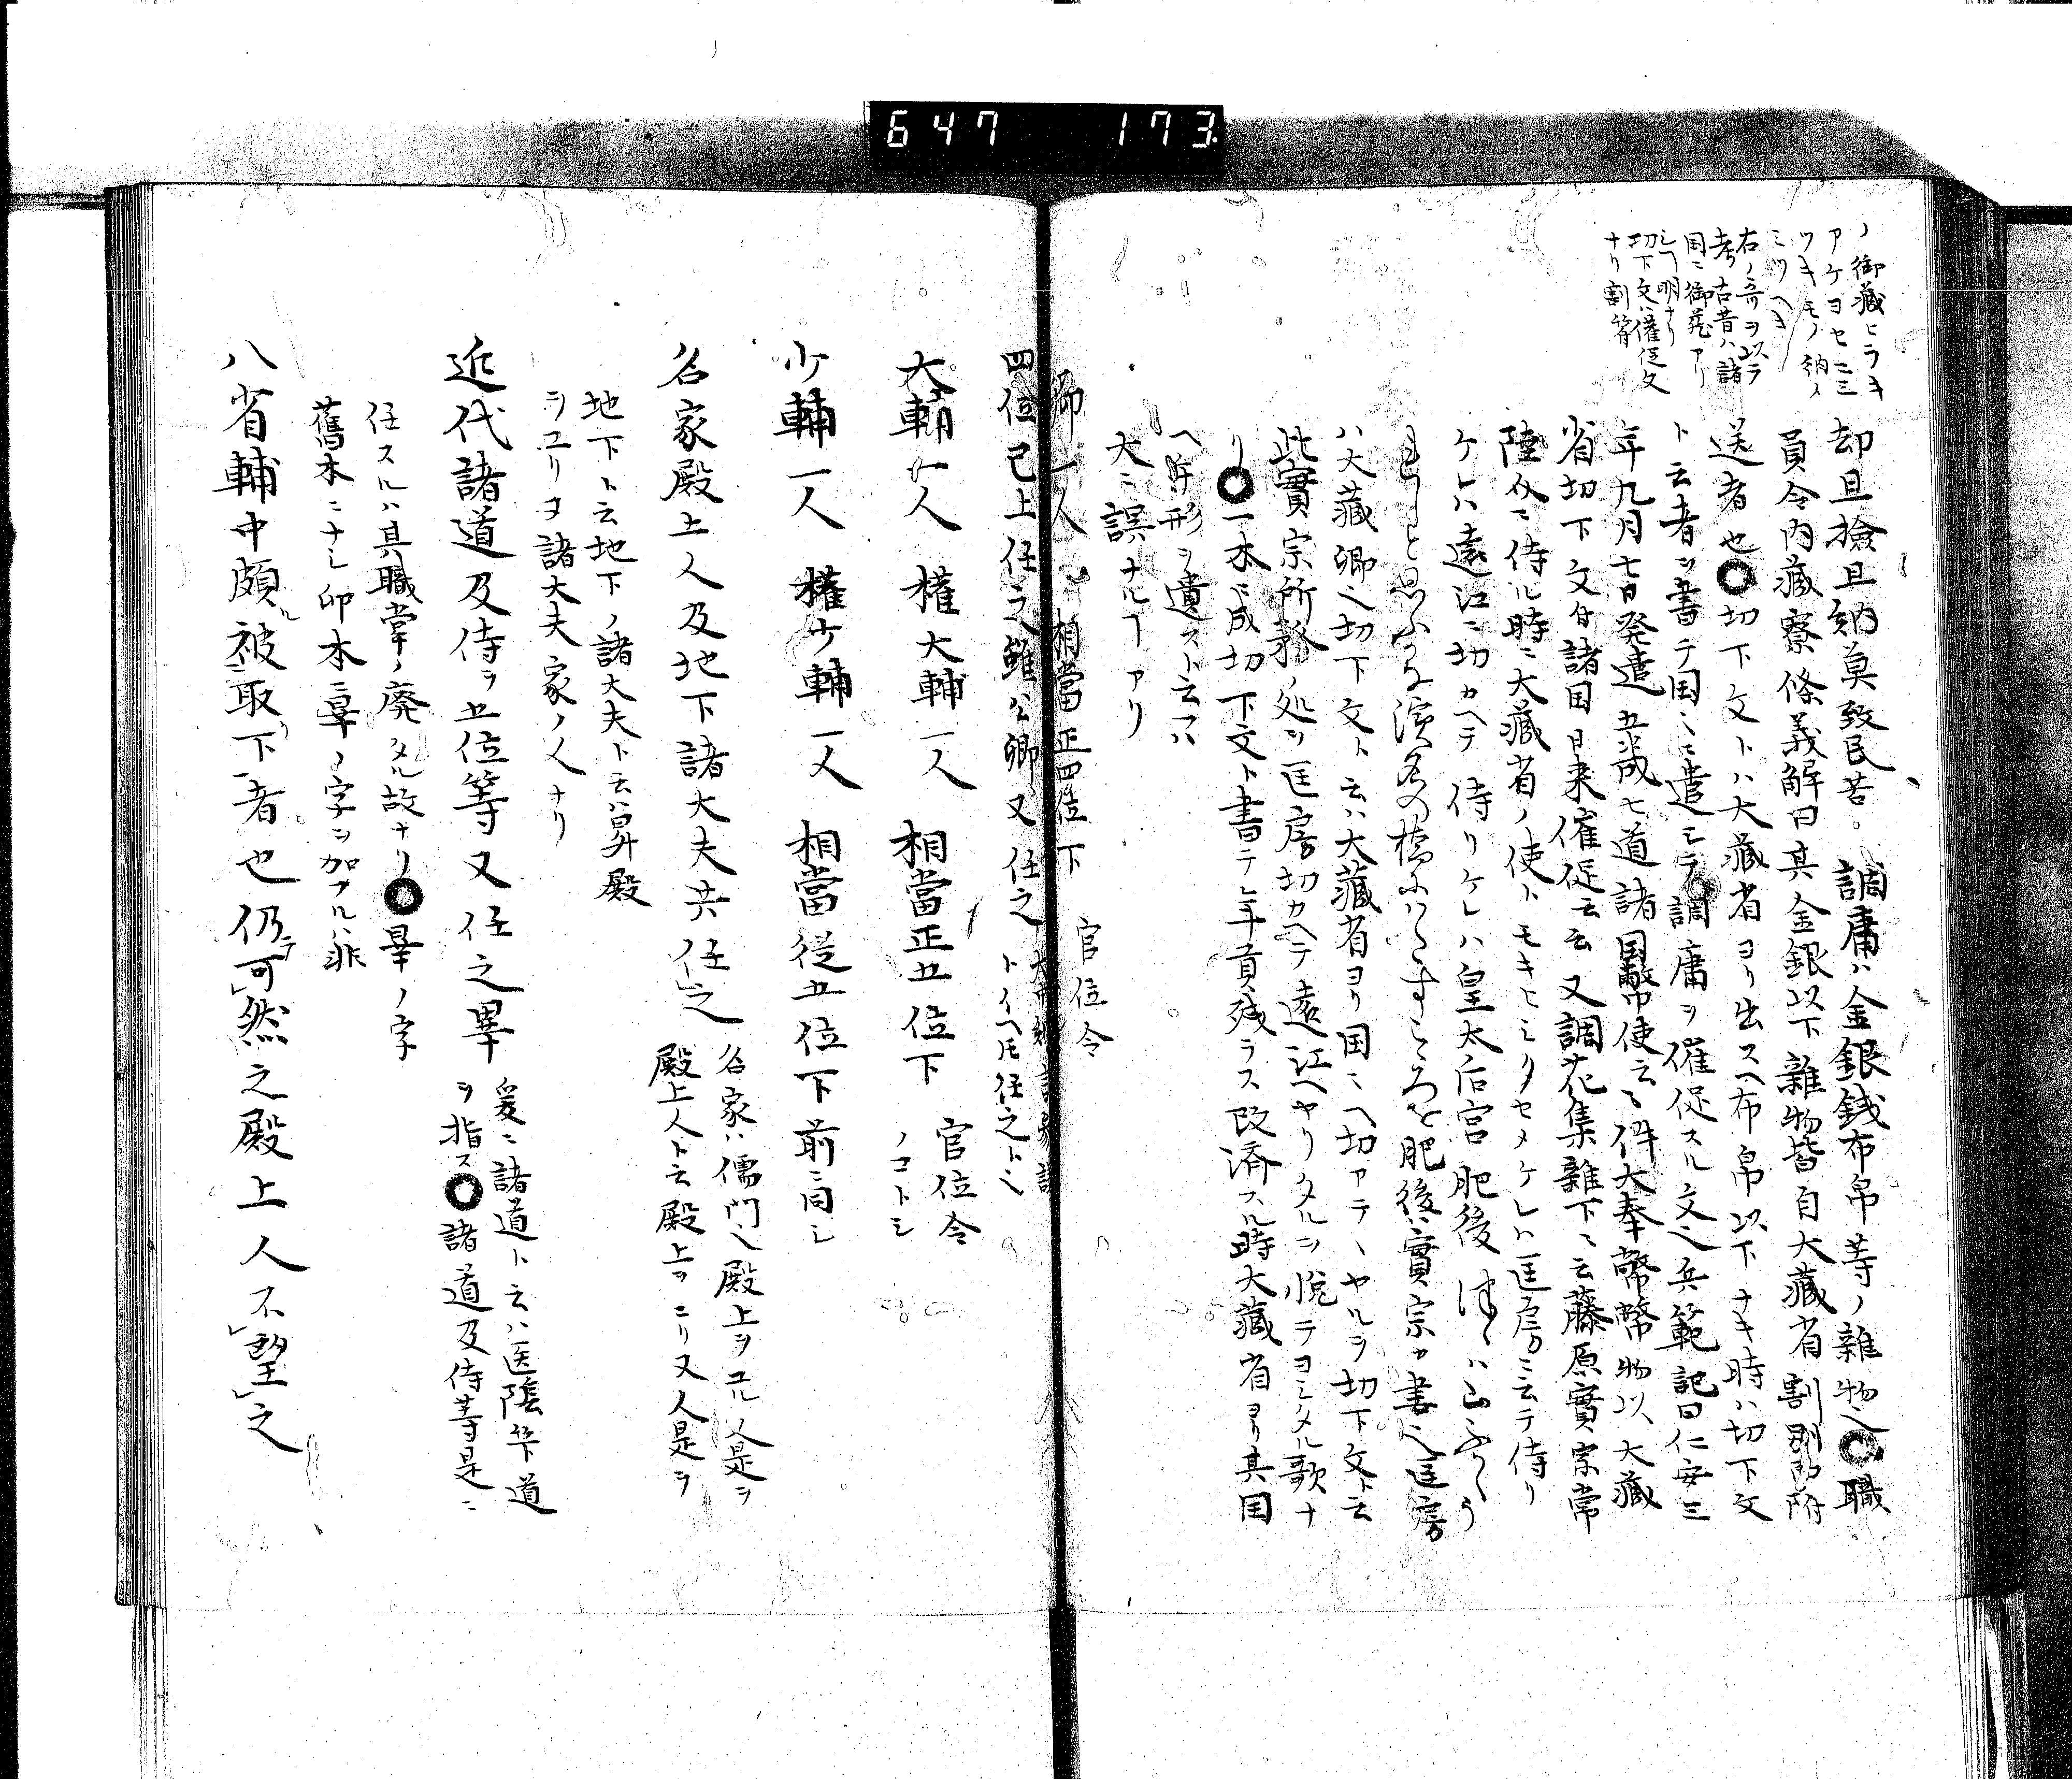 647 173
ノ御藏ヒラキ
アケヨセニミ
ツキモノ納メ
ミツヘキ
右ノ哥ヲ以テ
考古昔ハ諸
国ニ御藏アリ
シヿ明ナリ
切下文ハ催促文
ナリ割符
却且撿且納莫致民苦 調庸ハ金銀銭布帛等ノ雜物也○職
員令内藏寮條義解曰其金銀以下雜物皆自大藏省割別附
送者也○切下文トハ大藏省ヨリ出ス布帛以下ナキ時ハ切下文
ト云者ヲ書テ国ニ遣シテ調庸ヲ催促スル文也兵範記曰仁安三
年九月七日発遣五畿七道諸国幣使云々件大奉幣幣物以大藏
省切下文付諸国日来催促云云又調花集雜下ニ云藤原實宗常
陸介ニ侍ル時ニ大藏省ノ使トモキヒシクセメケレハ匡房ニ云テ侍リ
ケレハ遠江ニ切カヘテ侍リケレハ皇太后宮肥後
と思ふかな濱名の橋
肥後ハ實宗カ妻也匡房
ハ大藏卿也切下文ト云ハ大藏省ヨリ国ニヘ切アテヽヤルヲ切下文ト云
此實宗所務ノ処ヲ匡房切カヘテ遠江ヘヤリタルヲ悦テヨミタル歌ナ
リ○一本ニ成切下文ト書テ年貢残ラス改済スル時大藏省ヨリ其国
ヘ形ヲ遺スト云フハ
大ニ誤ナルヿアリ
卿一人 相當正四位下 官位令
四位已上任之雖公卿又任之
トイヘ圧任之ト也
大輔一人 權大輔一人 相當正五位下 官位令
ノコトシ
少輔一人 權少輔一人 相當從五位下 前ニ同シ
名家殿上人及地下諸大夫共任之 名家ハ儒門也殿上ヲユル人是ヲ
殿上人ト云殿上ヲユリヌ人是ヲ
地下ト云地下ノ諸大夫ト云ハ昇殿
ヲユリヌ諸大夫家ノ人ナリ
近代諸道及侍ヲ五位等又任之畢 爰ニ諸道ト云ハ医陰等下道
ヲ指ス○諸道及侍等是ニ
任スルハ其職掌ノ廃タル故ナリ○畢ノ字
舊本ニナシ印本ニ畢ノ字ヲ加フルハ非
八省輔中頗被取下者也仍可然之殿上人不望之